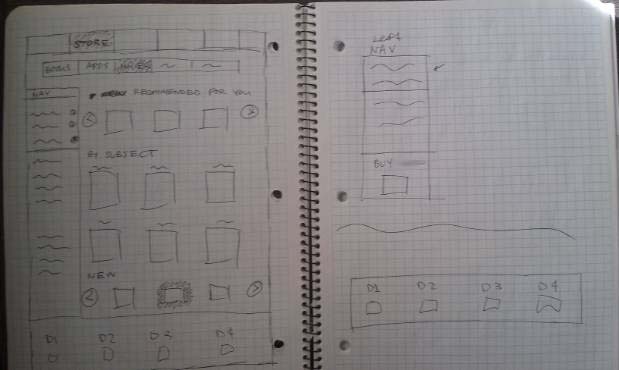 STORE
BOOKS APPS
NAV
RECOMMENDED FOR YOU
BY SUBJECT
NEW
D1 D2 D3 D4
LEFT
NAV
BUY
D1 D2 D3 D4